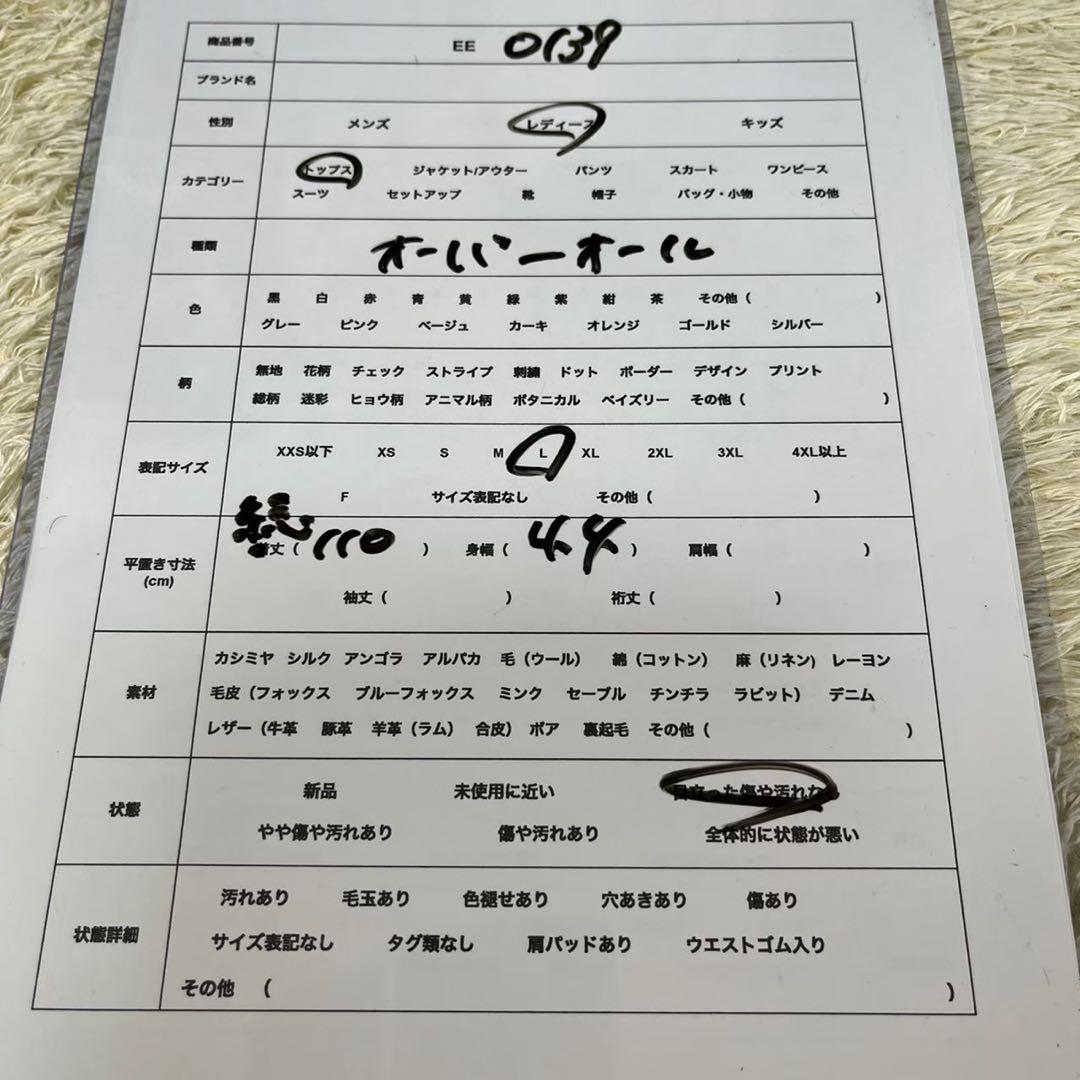 商品番号 EE 0139
ブランド名
性別 メンズ レディース キッズ
カテゴリー
トップス ジャケット/アウター パンツ スカート ワンピース
スーツ セットアップ 靴 帽子 バッグ・小物 その他
種類 オーバーオール
色
黒 白 赤 青 黄 緑 紫 紺 茶 その他 ( )
グレー ピンク ベージュ カーキ オレンジ ゴールド シルバー
柄
無地 花柄 チェック ストライプ 刺繍 ドット ボーダー デザイン プリント
総柄 迷彩 ヒョウ柄 アニマル柄 ボタニカル ペイズリー その他 ( )
表記サイズ
XXS以下 XS S M L XL 2XL 3XL 4XL以上
F サイズ表記なし その他 ( )
平置き寸法
(cm)
総丈 ( 110 ) 身幅 ( 44 ) 肩幅 ( )
袖丈 ( ) 裄丈 ( )
素材
カシミヤ シルク アンゴラ アルパカ 毛 (ウール) 綿 (コットン) 麻 (リネン) レーヨン
毛皮 (フォックス ブルーフォックス ミンク セーブル チンチラ ラビット) デニム
レザー (牛革 豚革 羊革 (ラム) 合皮) ボア 裏起毛 その他 ( )
状態
新品 未使用に近い 目立った傷や汚れなし
やや傷や汚れあり 傷や汚れあり 全体的に状態が悪い
状態詳細
汚れあり 毛玉あり 色褪せあり 穴あきあり 傷あり
サイズ表記なし タグ類なし 肩パッドあり ウエストゴム入り
その他 ( )